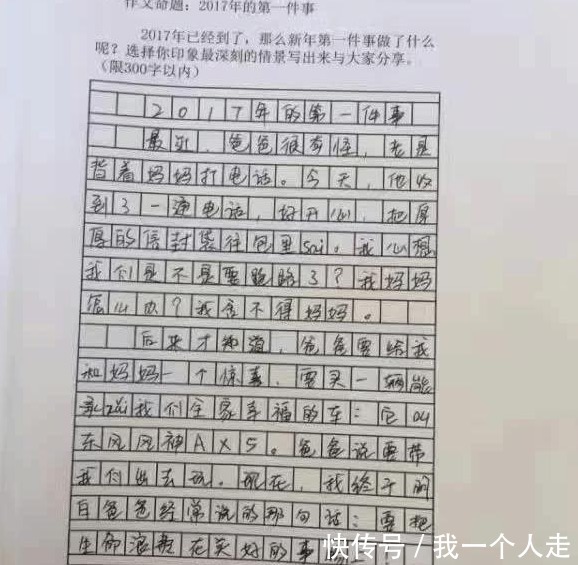 作文命题：2017年的第一件事
2017年已经到了，那么新年第一件事做了什么
呢？选择你印象最深刻的情景写出来与大家分享。
（限300字以内）
2017年的第一件事
最近，爸爸很奇怪，老是
背着妈妈打电话。今天，他收
到了一通电话，好开心，把厚
厚的信封袋往包里sai。我心想
我们是不是要跑路了？我妈妈
怎么办？我舍不得妈妈。
后来才知道，爸爸要给我
和妈妈一个惊喜，要买一辆能
承zai我们全家幸福的车：它叫
东风风神AX5。爸爸说要带
我们出去玩。现在，我终于明
白爸爸经常说的那句话：要把
生命浪费在美好的事
快传号／我一个人走